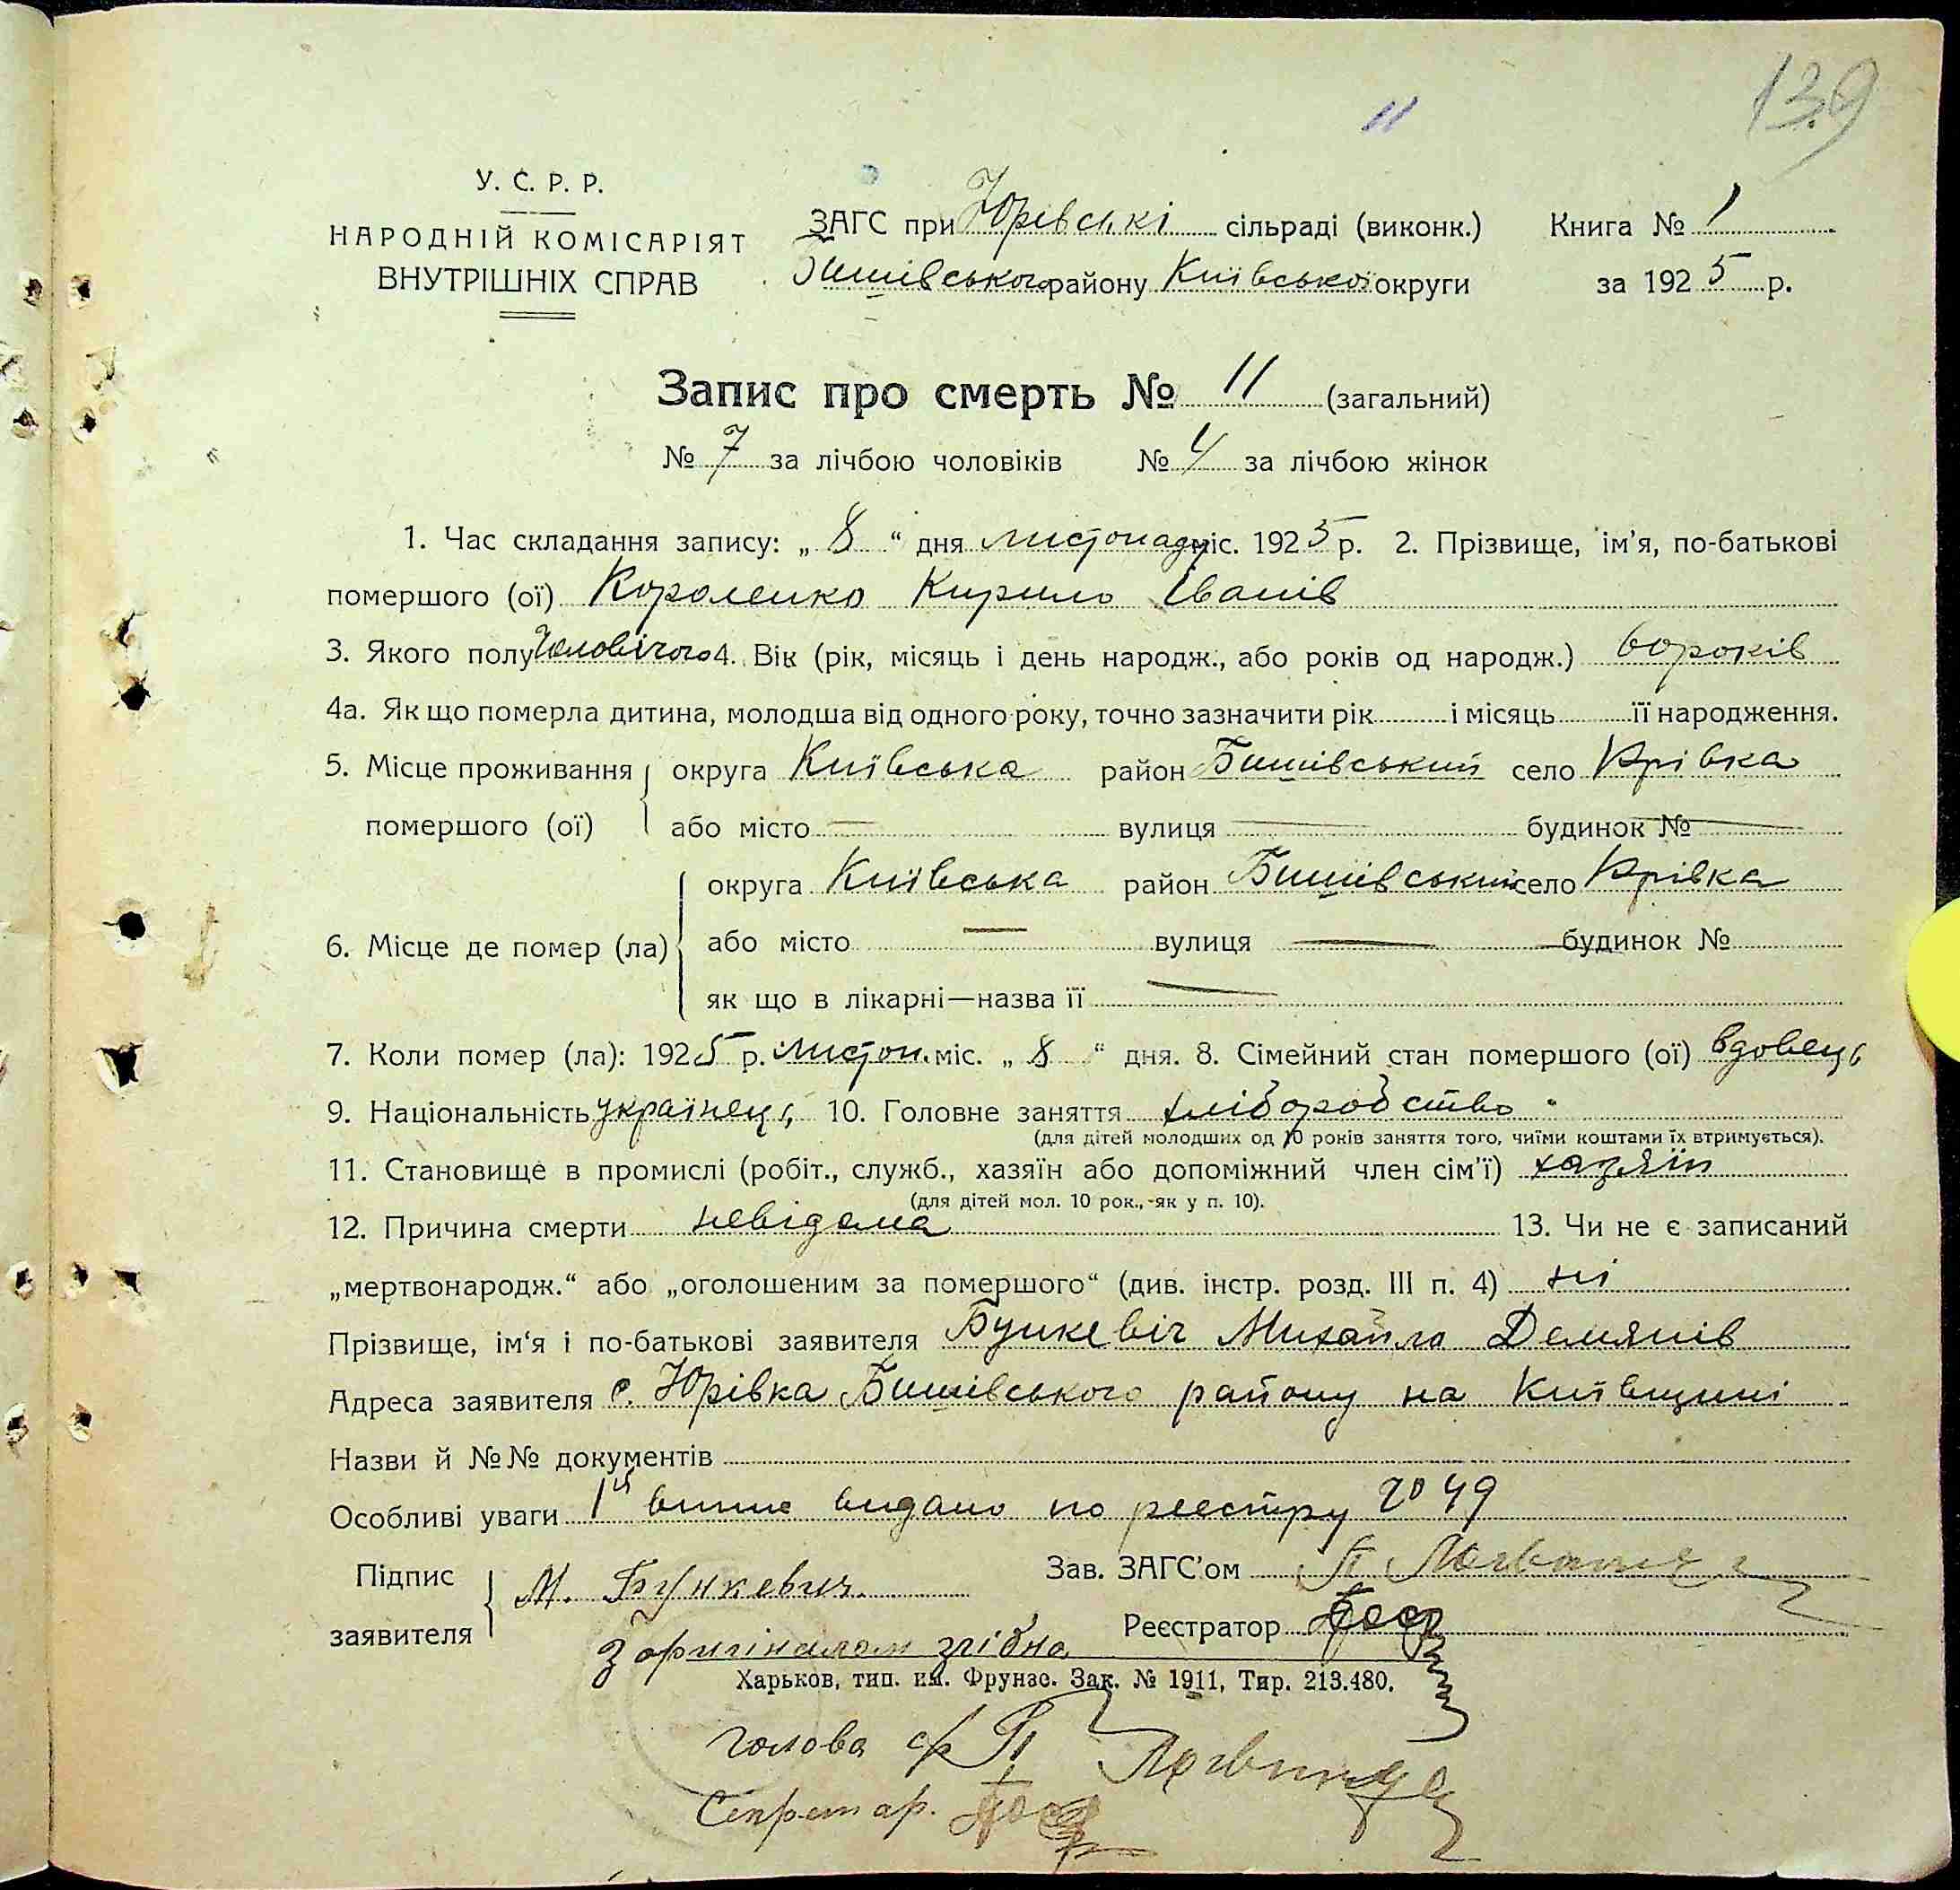 139
11
У. С. Р. Р.
НАРОДНІЙ КОМІСАРІЯТ
ВНУТРІШНІХ СПРАВ
ЗАГС при Юрівські сільраді (виконк.) Книга № 1
Бишівського району Київської округи за 1925 р.
Запис про смерть № 11 (загальний)
№ 7 за лічбою чоловіків № 4 за лічбою жінок
1. Час складання запису: „ 8 “ дня листопаду міс. 1925 р. 2. Прізвище, ім’я, по-батькові
помершого (ої) Короленко Кирило Іванів
3. Якого полу Чоловічого 4. Вік (рік, місяць і день народж., або років од народж.) 60 років
4а. Як що померла дитина, молодша від одного року, точно зазначити рік і місяць її народження.
5. Місце проживання округа Київська район Бишівський село Юрівка
помершого (ої) або місто — вулиця — будинок № —
округа Київська район Бишівський село Юрівка
6. Місце де помер (ла) або місто — вулиця — будинок №
як що в лікарні—назва її —
7. Коли помер (ла): 1925 р. листоп. міс. „ 8 “ дня. 8. Сімейний стан помершого (ої) вдовець
9. Національність українець 10. Головне заняття хліборобство
(для дітей молодших од 10 років заняття того, чиїми коштами їх втримується).
11. Становище в промислі (робіт., служб., хазяїн або допоміжний член сім’ї) хазяїн
(для дітей мол. 10 рок., як у п. 10).
12. Причина смерти невідома 13. Чи не є записаний
„мертвонародж.“ або „оголошеним за помершого“ (див. інстр. розд. III п. 4) ні
Прізвище, ім‘я і по-батькові заявителя Бункевіч Михайло Демянів
Адреса заявителя с. Юрівка Бишівського району на Київщині
Назви й №№ документів
Особливі уваги 1й випис видано по реестру № 49
Підпис М. Бункевич. Зав. ЗАГС’ом П Логвинец
заявителя Реєстратор
З оригіналом згідно
Харьков, тип. им. Фрунзе. Зак. № 1911, Тир. 213.480.
голова с/р П Логвинец
Секретар.